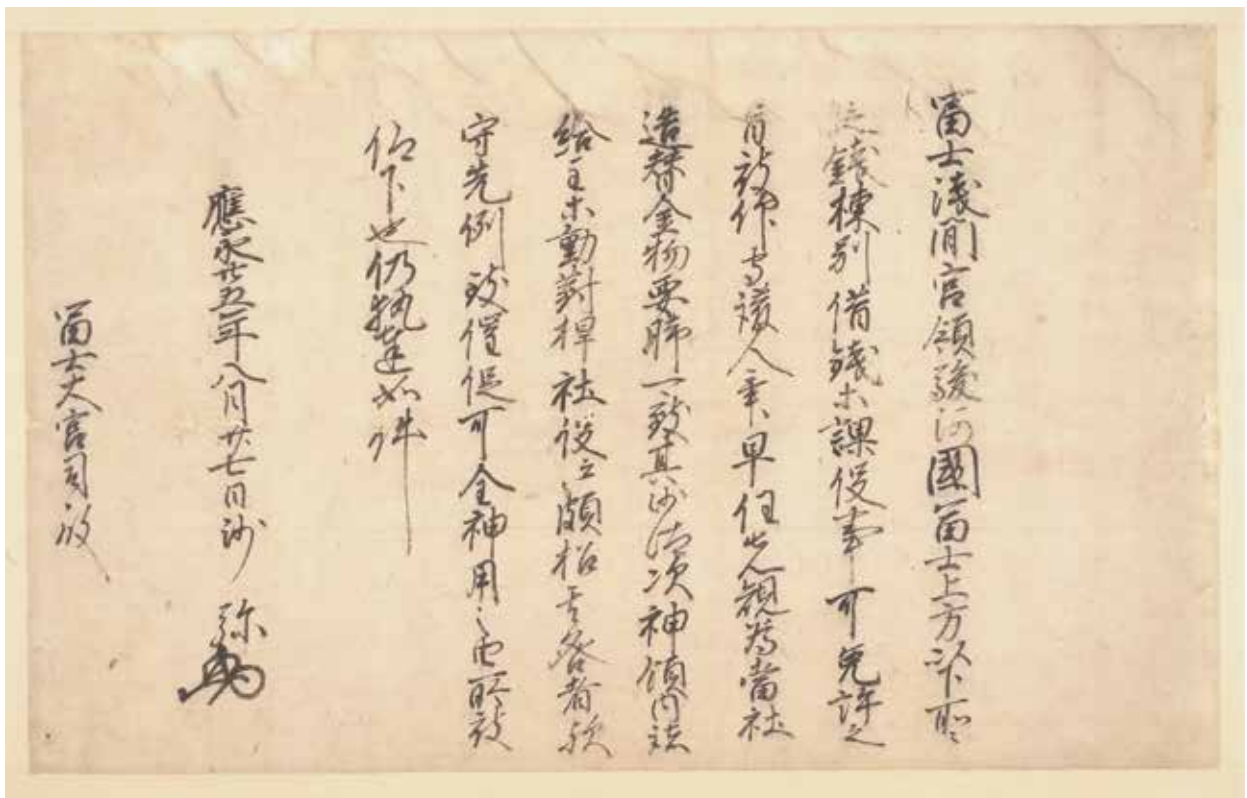 富士浅間宮領駿河國富士上方以下所
之錢棟別借錢等課役事可免許之
旨被仰守護人畢早任先規為當社
造替金物要脚一致其沙汰次神領内諸
給主等動對捍社役云頗招其咎者歟
守先例致催促可全神用之由所被
仰下也仍執達如件
應永廿五年八月廿七日沙弥
富士大宮司殿